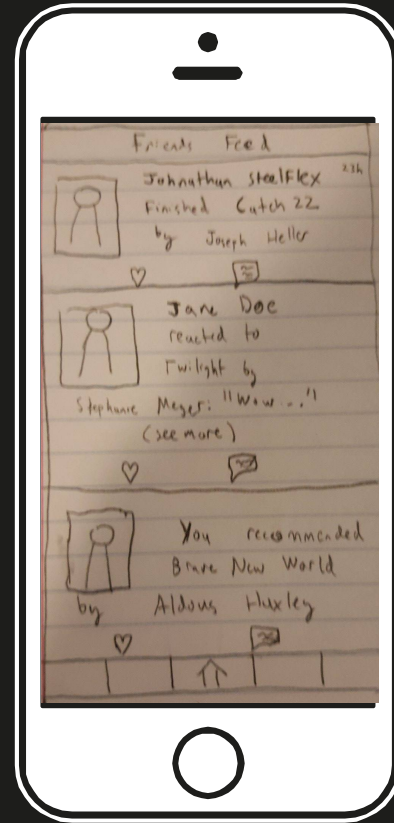 Friends Feed
Johnathan Steelflex 23h
Finished Catch 22
by Joseph Heller
Jane Doe
reacted to
Twilight by
Stephanie Meyer: "Wow..."
(see more)
You recommended
Brave New World
by Aldous Huxley